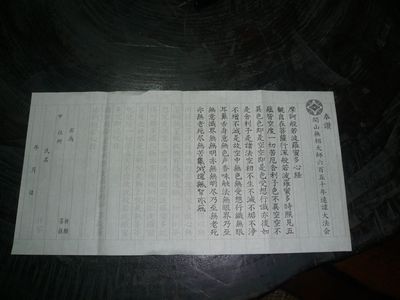 奉讃
開山無相大師六百五十年遠諱大法会
摩訶般若波羅蜜多心経
観自在菩薩行深般若波羅蜜多時照見五
蘊皆空度一切苦厄舎利子色不異空空不
異色色即是空空即是色受想行識亦復如
是舎利子是諸法空相不生不滅不垢不浄
不増不減是故空中無色無受想行識無眼
耳鼻舌身意無色声香味触法無眼界乃至
無意識界無無明亦無無明尽乃至無老死
亦無老死尽無苦集滅道無智亦無
為
〒 住所
氏名
年 月 日